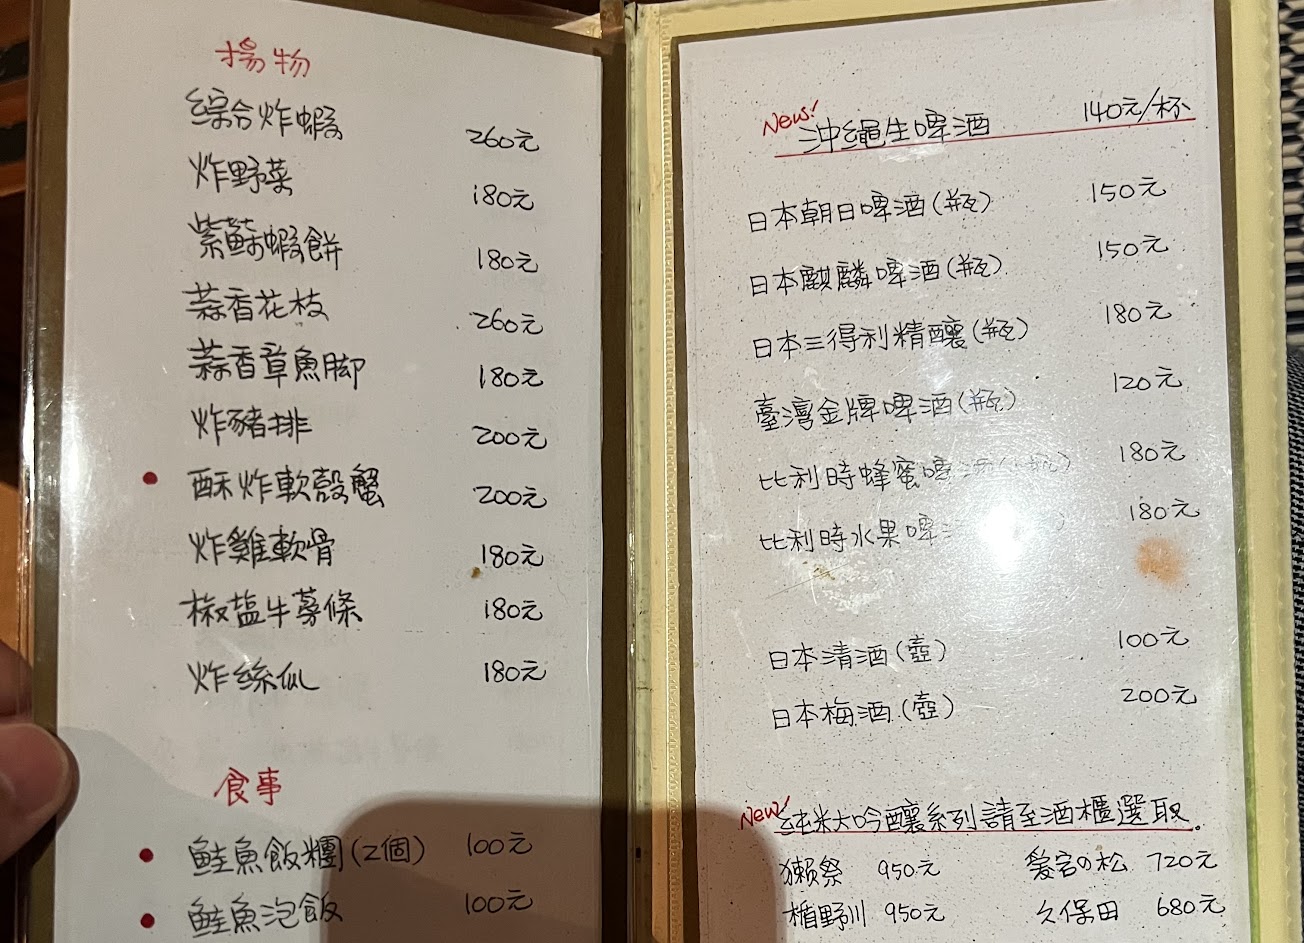 揚物
綜合炸蝦 260元
炸野菜 180元
紫蘇蝦餅 180元
蒜香花枝 260元
蒜香章魚脚 180元
炸豬排 200元
酥炸軟殼蟹 200元
炸雞軟骨 180元
椒盐牛蒡條 180元
炸絲仙 180元
食事
鮭魚飯糰(2個) 100元
鮭魚泡飯 100元
New! 沖繩生啤酒 140元/杯
日本朝日啤酒(瓶) 150元
日本麒麟啤酒(瓶) 150元
日本三得利精釀(瓶) 180元
臺灣金牌啤酒(瓶) 120元
比利時蜂蜜啤酒(瓶) 180元
比利時水果啤酒 180元
日本清酒(壺) 100元
日本梅酒(壺) 200元
New! 純米大吟釀系列請至酒櫃選取。
獺祭 950元 愛宕の松 720元
楯野川 950元 久保田 680元